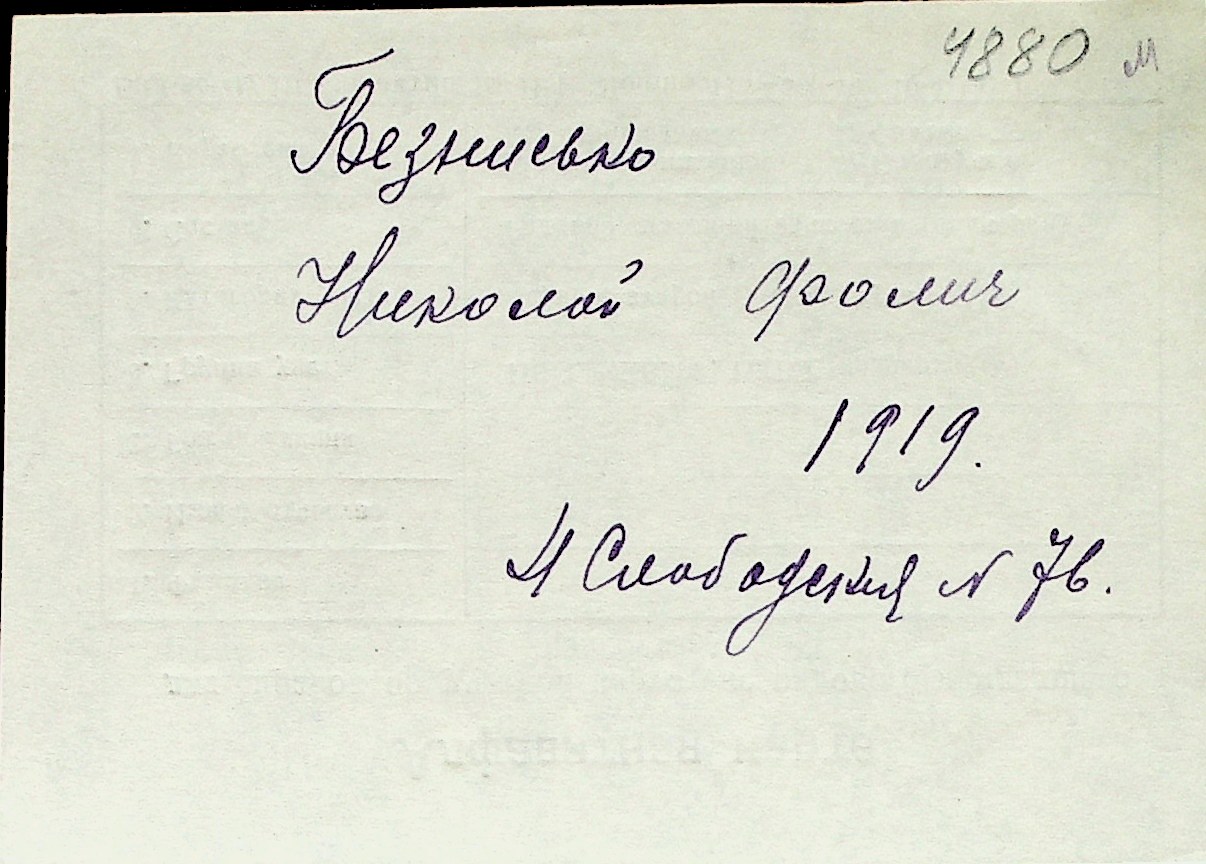 4880 м
Безнисько
Николай Фомич
1919.
Слободская N 7в.